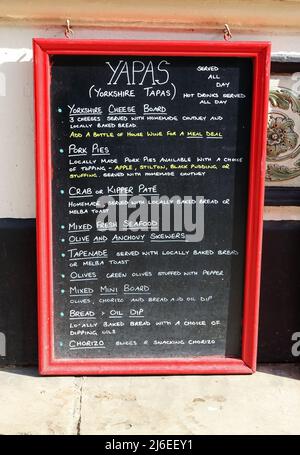 YAPAS
(YORKSHIRE TAPAS)
SERVED
ALL
DAY
HOT DRINKS SERVED
ALL DAY
YORKSHIRE CHEESE BOARD
3 CHEESES SERVED WITH HOMEMADE CHUTNEY AND
LOCALLY BAKED BREAD
ADD A BOTTLE OF HOUSE WINE FOR A MEAL DEAL
PORK PIES
LOCALLY MADE PORK PIES AVAILABLE WITH A CHOICE
OF TOPPING - APPLE, STILTON, BLACK PUDDING, OR
STUFFING. SERVED WITH HOMEMADE CHUTNEY
CRAB OR KIPPER PATÉ
HOMEMADE, SERVED WITH LOCALLY BAKED BREAD OR
MELBA TOAST
MIXED FRESH SEAFOOD
OLIVE AND ANCHOVY SKEWERS
TAPENADE SERVED WITH LOCALLY BAKED BREAD
OR MELBA TOAST
OLIVES GREEN OLIVES STUFFED WITH PEPPER
MIXED MINI BOARD
OLIVES, CHORIZO AND BREAD AND OIL DIP
BREAD & OIL DIP
LOCALLY BAKED BREAD WITH A CHOICE OF
DIPPING OILS
CHORIZO SLICES OR SNACKING CHORIZO
alamy
Image ID: 2J6EEY1
www.alamy.com